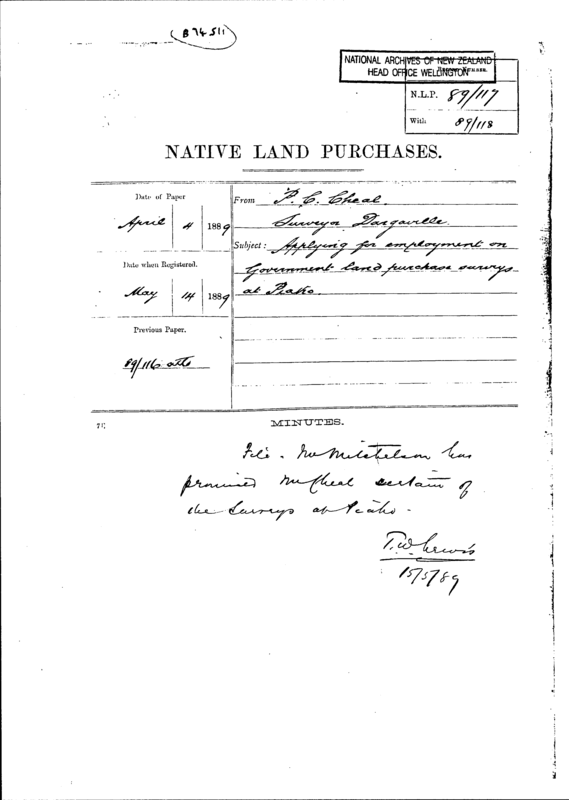 B 74511
NATIONAL ARCHIVES OF NEW ZEALAND
HEAD OFFICE WELLINGTON
N.L.P. 89/117
With 89/118
NATIVE LAND PURCHASES.
Date of Paper
April 4 1889
Date when Registered.
May 14 1889
Previous Paper.
89/116 atts
From P. C. Cheal.
Surveyor Dargaville.
Subject: Applying for employment on
Government land purchase surveys
at Piako.
MINUTES.
File. Mr Mitchelson has
promised Mr Cheal certain of
the Surveys at Piako.
T.W. Lewis
15/5/89